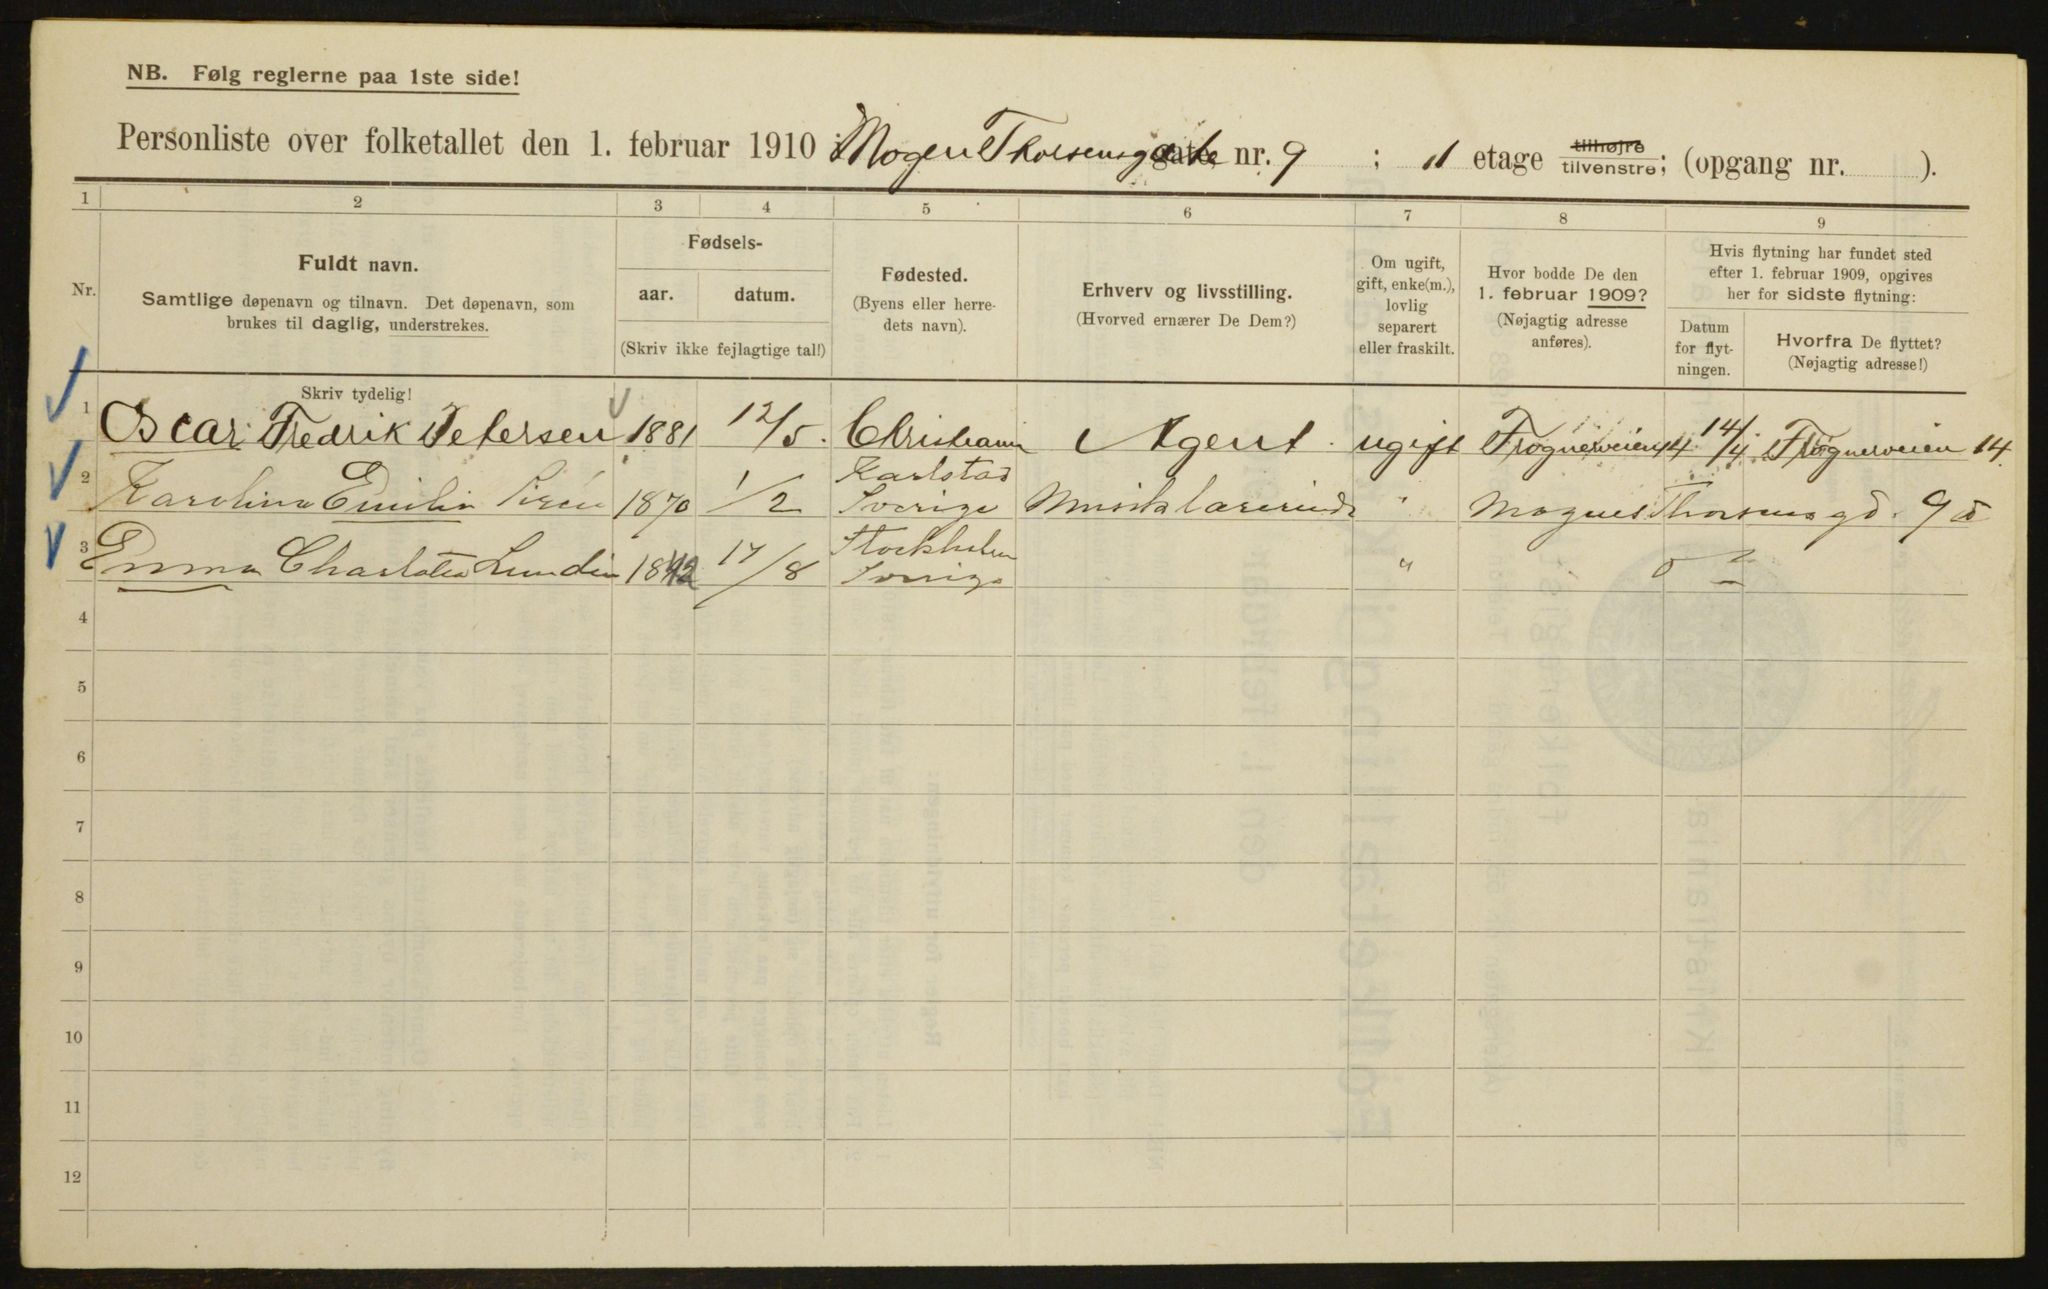 NB. Følg reglerne paa 1ste side!
Personliste over folketallet den 1. februar 1910 i Mogen Thorsensgate gate nr. 9 ; 11 etage tilhøjre tilvenstre; (opgang nr. ).
1 2 3 4 5 6 7 8 9
Nr.
Fuldt navn.
Samtlige døpenavn og tilnavn. Det døpenavn, som
brukes til daglig, understrekes.
Skriv tydelig!
Fødsels-
aar. datum.
(Skriv ikke fejlagtige tal!)
Fødested.
(Byens eller herre-
dets navn).
Erhverv og livsstilling.
(Hvorved ernærer De Dem?)
Om ugift,
gift, enke(m.),
lovlig
separert
eller fraskilt.
Hvor bodde De den
1. februar 1909?
(Nøjagtig adresse
anføres).
Hvis flytning har fundet sted
efter 1. februar 1909, opgives
her for sidste flytning:
Datum
for flyt-
ningen.
Hvorfra De flyttet?
(Nøjagtig adresse!)
1 Oscar Fredrik Petersen 1881 12/5. Christiania Agent. ugift Frogneveien 14 14/4 Frognerveien 14.
2 Karolina Emilia 1870 1/2 Karlstad Sverige Musiklærerinde " Magnus Thorsens gd. 9 a
3 Emma Charlotta Lundin 1842 17/8 Stockholm Sverige "
4
5
6
7
8
9
10
11
12